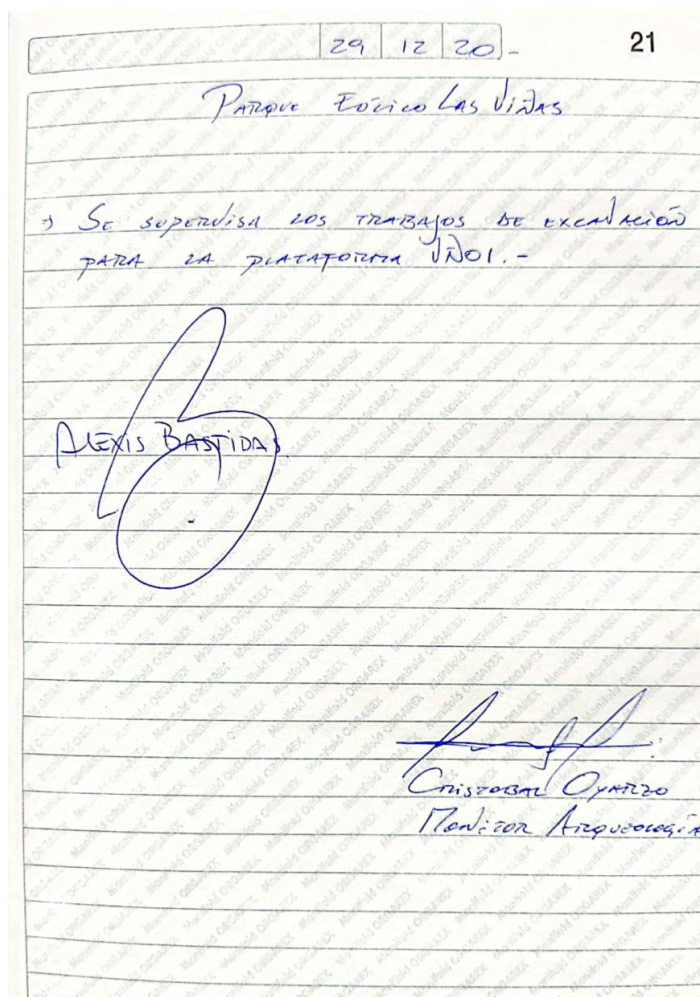 29 12 20.-
21
Parque Eólico Las Viñas
⇒ Se supervisa los trabajos de excavación
para la plataforma VÑ01.-
Alexis Bastidas
Cristobal Oyarzo
Monitor Arqueología